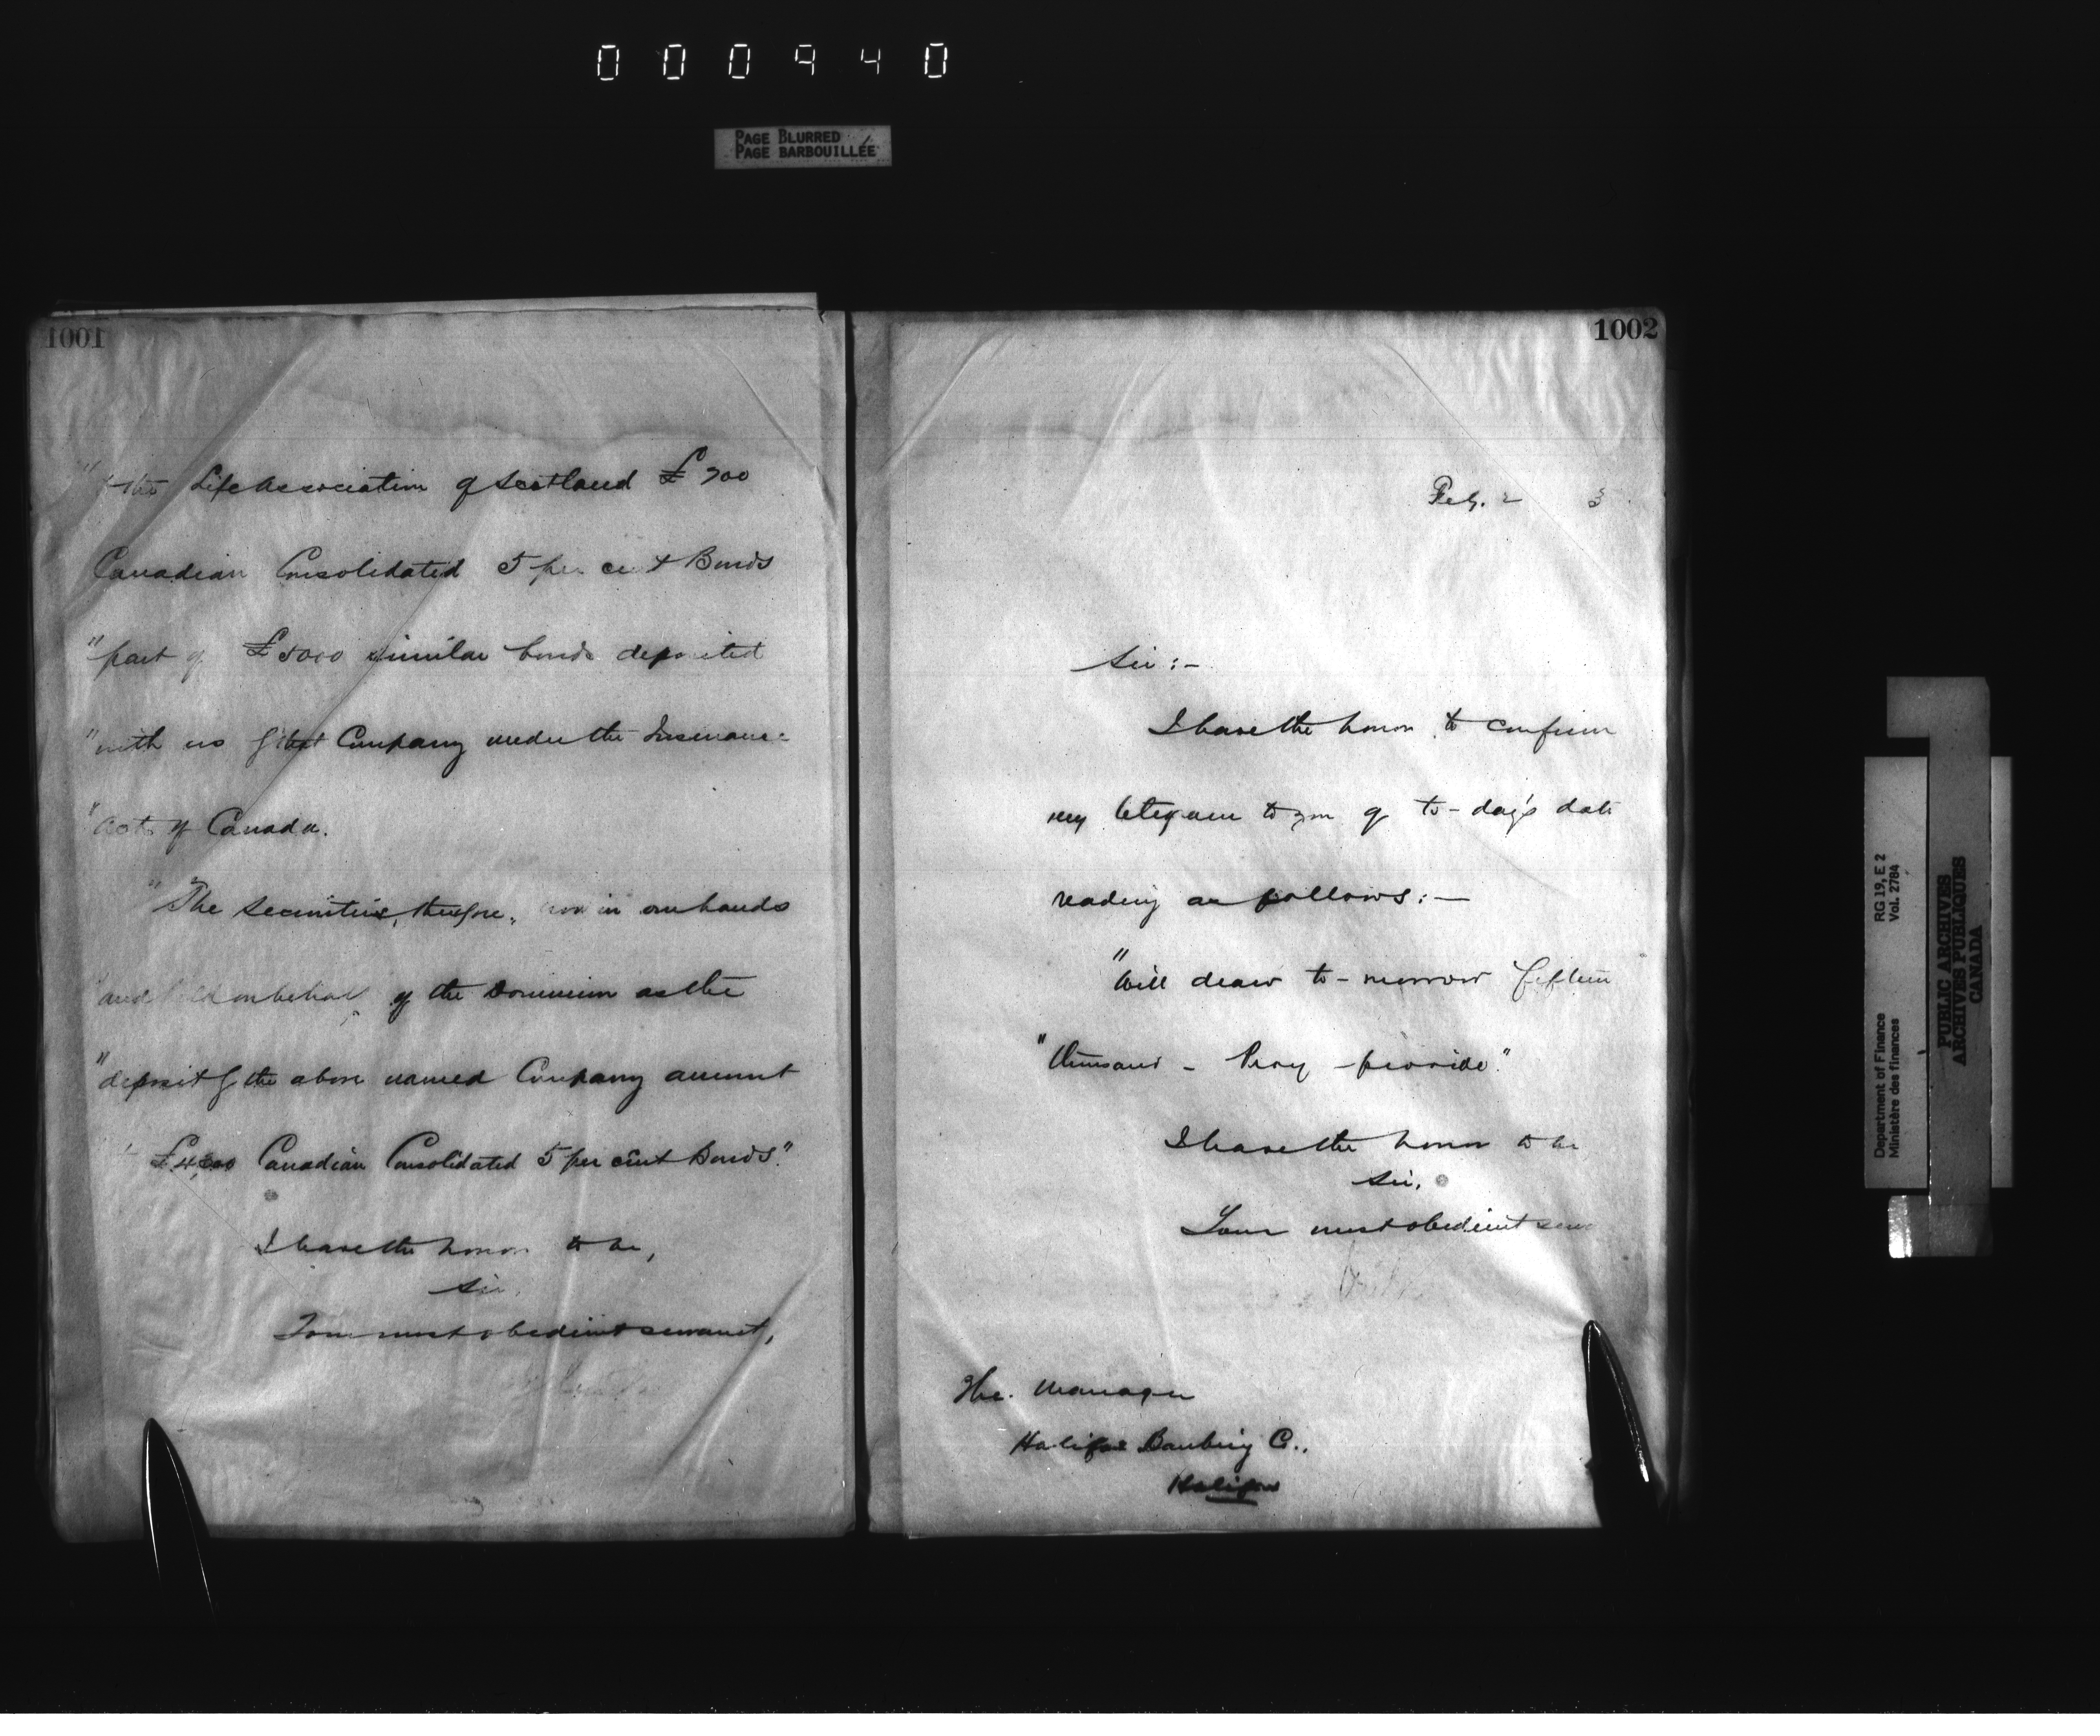 000940
PAGE BLURRED
PAGE BARBOUILLÉE
1001
" the Life Association of Scotland £700
Canadian Consolidated 5 per cent Bonds
"part of £5000 similar bonds deposited
"with us for that Company under the Insurance
"Acts of Canada.
"The securities, therefore, now in our hands
"and held on behalf of the Dominion as the
"deposit of the above named Company amount
Canadian Consolidated 5 per cent Bonds."
I have the honor to be,
Sir,
Your most obedient servant,
1002
Feby. 2 3
Sir:-
I have the honor to confirm
my telegram to you of to-day's date
reading as follows:-
"Will draw to-morrow fifteen
"thousand - Pray provide."
I have the honor to be
Sir,
Your most obedient serv
The Manager
Halifax Banking Co.,
Halifax
Department of Finance
Ministère des finances
RG 19, E 2
Vol. 2784
PUBLIC ARCHIVES
ARCHIVES PUBLIQUES
CANADA